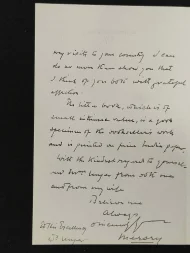 my visits to your country I can
do no more than show you that
I think of you both with grateful
affection.
The little book, which is of
small intrinsic value, is a good
specimen of the booksellers work
and is printed on fine India paper.
With the kindest regards to yourself
and Mrs from both me
and from my wife
Believe me
Always